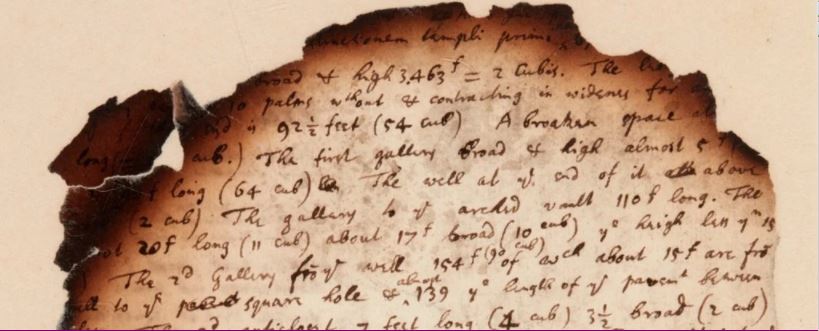 templi primi
broad & high 3.463f = 2 Cubis. The
10 palms wthout & contracting in widenes for
end is 92½ feet (54 cub) A broaken space
long cub.) The first gallery broad & high almost 5
f long (64 cub) The well at ye end of it above
(2 cub) The gallery to ye arched vault 110f long. The
20f long (11 cub) about 17f broad (10 cub) ye heigh less yn 15
The 2d Gallery fro ye well 154f (90 cub) of wch about 15f are fro
to ye square hole & almost 139 ye length of ye pavemt between
7 feet long (4 cub) 3½ broad (2 cub)